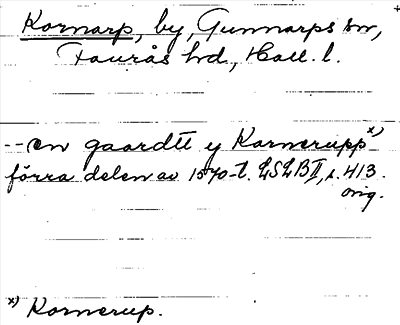 Kornarp, by, Gunnarps sn,
Faurås hd., Hall. l.
-- en gaardtt y Kornerupp x)
förra delen av 1570-t. LSLB II, s. 413.
orig.
x) Kornerup.